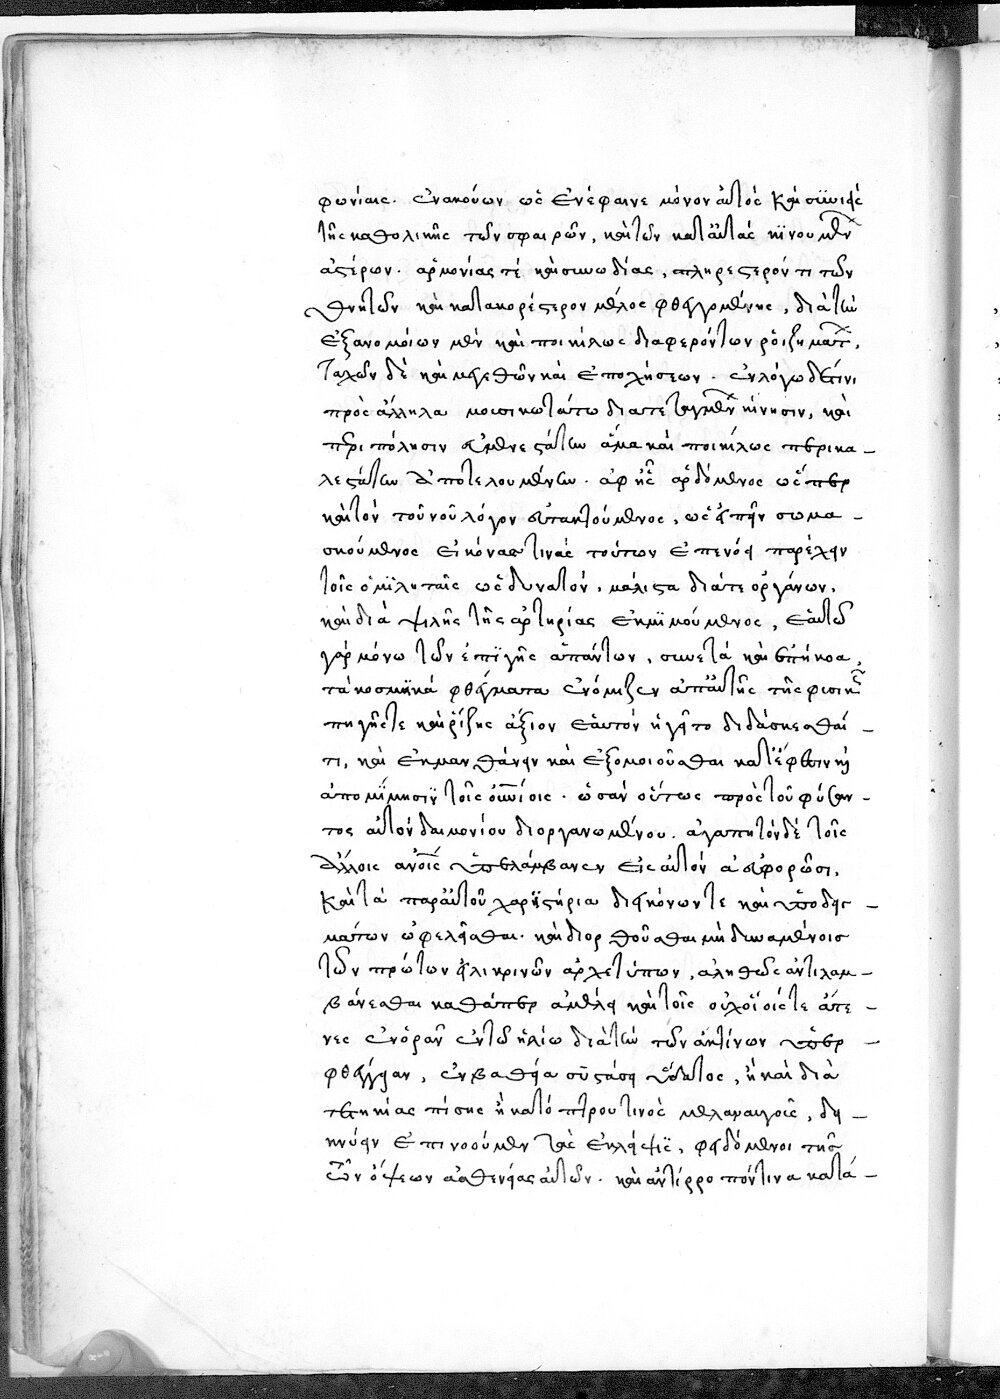 φωνίαις. ἐνακούων ὡς ἐνέφαινε μόνον αὐτὸς καὶ συνιεὶς
τῆς καθολικῆς τῶν σφαιρῶν, καὶ τῶν κατ' αὐτὰς κινουμένων
ἀστέρων. ἁρμονίας τὲ καὶ συνωδίας, πληρέστερόν τι τῶν
θνητῶν καὶ κατακορέστερον μέλος φθεγγομένης, διὰ τῶν
ἐξ ἀνομοίων μὲν καὶ ποικίλως διαφερόντων ῥοιζημάτων,
ταχῶν δὲ καὶ μεγεθῶν καὶ ἐποχήσεων. ἐν λόγω δέ τινι
πρὸς ἄλληλα μουσικωτάτω διατεταγμένων κίνησιν, καὶ
περιπόλησιν εὐμενεστάτων ἅμα καὶ ποικίλως περικα-
λεστάτων ἀποτελουμένων. ἀφ' ἧς ἀρδόμενος ὥσπερ
καὶ τὸν τοῦ νοῦ λόγον εὐτακτούμενος, ὡς εἰπεῖν σωμα-
σκούμενος εἰκόνας τινὰς τούτων ἐπενόει παρέχειν
τοῖς ὁμιληταῖς ὡς δυνατὸν, μάλιστα διά τε ὀργάνων,
καὶ διὰ ψιλῆς τῆς ἀρτηρίας ἐκμιμούμενος, ἑαυτῶ
γὰρ μόνω τῶν ἐπὶ γῆς ἁπάντων, συνετὰ καὶ ἐπήκοα,
τὰ κοσμικὰ φθέγματα ἐνόμιζεν ἀπ' αὐτῆς τῆς φυσικῆς
πηγῆς τε καὶ ῥίζης ἄξιον ἑαυτὸν ἡγεῖτο διδάσκεσθαί
τι, καὶ ἐκμανθάνειν καὶ ἐξομοιοῦσθαι κατ' ἔφεσιν καὶ
ἀπομίμησιν τοῖς οὐρανίοις. ὡσὰν οὕτως πρὸς τοῦ φύσαν-
τος αὐτὸν δαιμονίου διοργανωμένου. ἀγαπητὸν δὲ τοῖς
ἄλλοις ἀνθρώποις ὑπελάμβανεν εἰς αὐτὸν ἀφορῶσι,
καὶ τὰ παρ' αὐτοῦ χαριστήρια δι' εἰκόνων τε καὶ ὑποδειγ-
μάτων ὠφελεῖσθαι. καὶ διορθοῦσθαι μὴ δυναμένοις
τῶν πρώτων εἰλικρινῶν ἀρχετύπων, ἀληθῶς ἀντιλαμ-
βάνεσθαι καθάπερ ἀμέλει καὶ τοῖς οὐχ οἵοις τε ἀτε-
νὲς ἐνορᾶν ἐν τῶ ἡλίω διὰ τῶν τῶν ἀκτίνων ὑπερ-
φθέγγειαν, ἐν βαθεία συστάσει ὕδατος, ἢ καὶ διὰ
τετηκυίας πίσσης ἢ κατόπτρου τινὸς μελαναυγοῦς, δει-
κνύειν ἐπινοούμεν τὰς ἐκλείψεις, φειδόμενοι τῆς
τῶν ὄψεων ἀσθενείας αὐτῶν. καὶ ἀντίρροπόν τινα κατά-